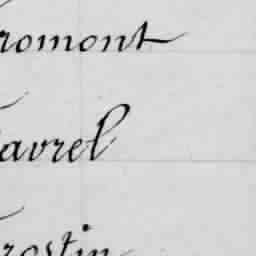 romont
avrel
rostin